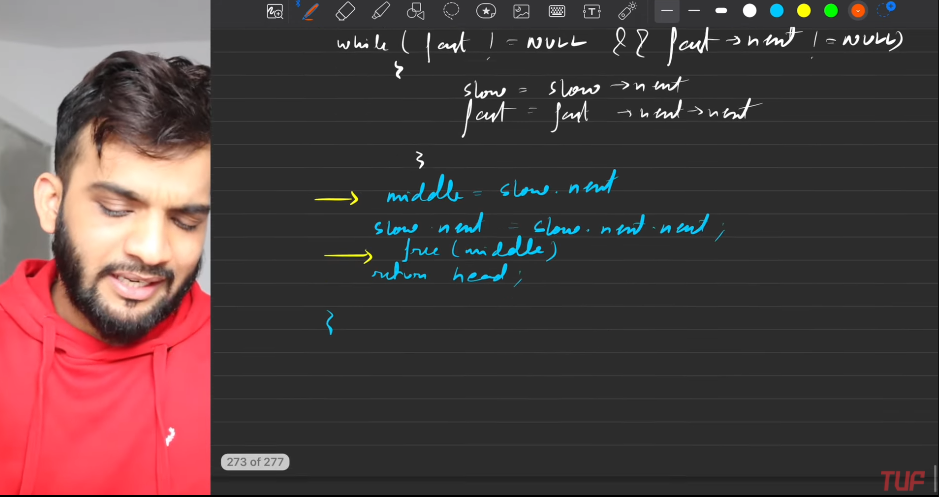 while ( fast != NULL && fast → next != NULL)
{
slow = slow → next
fast = fast → next → next
}
middle = slow.next
slow.next = slow.next.next;
free (middle)
return head;
}
273 of 277
TUF